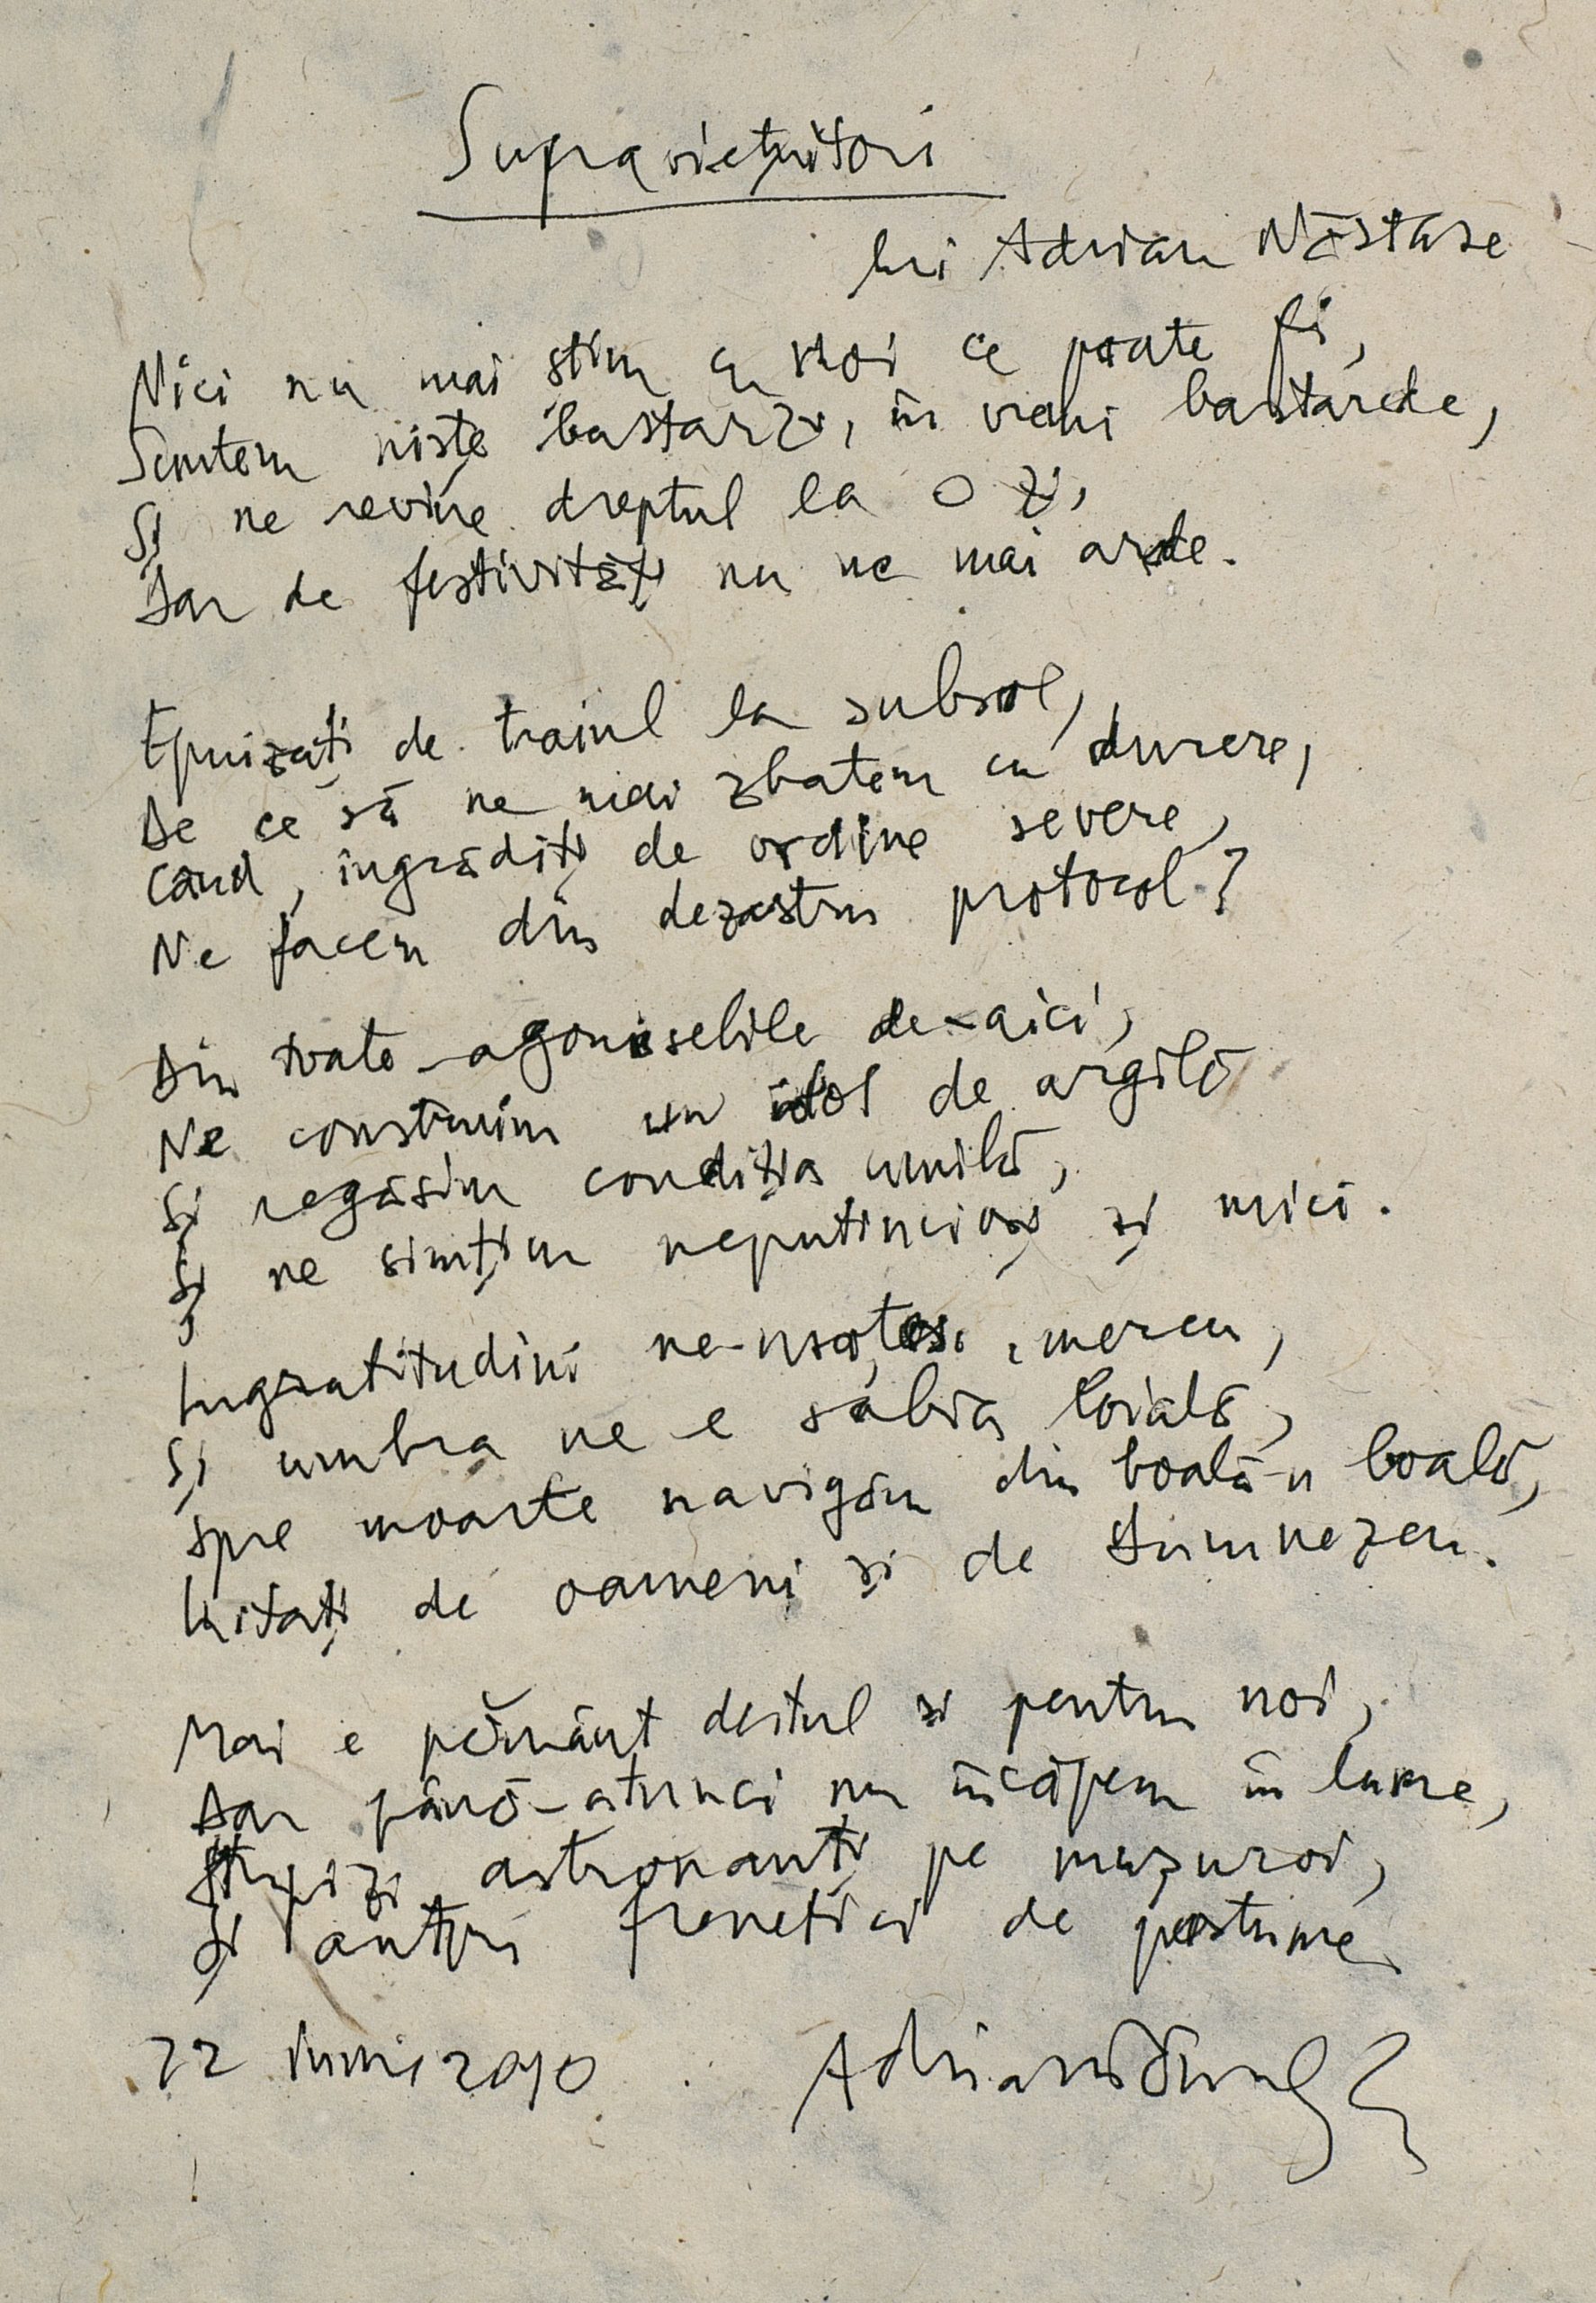 Supraviețuitori
lui Adrian Năstase
Nici nu mai știm cu noi ce poate fi,
Suntem niște bastarzi, în vremi bastarde,
Și ne revine dreptul la o zi,
Dar de festivități nu ne mai arde.
Epuizați de traiul la subsol,
De ce să ne mai zbatem cu durere,
Când, îngrădiți de ordine severe,
Ne facem din dezastru protocol?
Din toate-agoniselile de-aici,
Ne construim un idol de argilă
Și regăsim condiția umilă,
Și ne simțim neputincioși și mici.
Ingratitudini ne-nsoțesc, mereu,
Și umbra ne e sabia loială,
Spre moarte navigăm din boală-n boală,
Uitați de oameni și de Dumnezeu.
Mai e pământ destul și pentru noi,
Dar până-atunci nu încăpem în lume,
Stupizi astronauți pe mușuroi,
Și antici frenetici de postume
22 iunie 2010
Adrian Păunescu